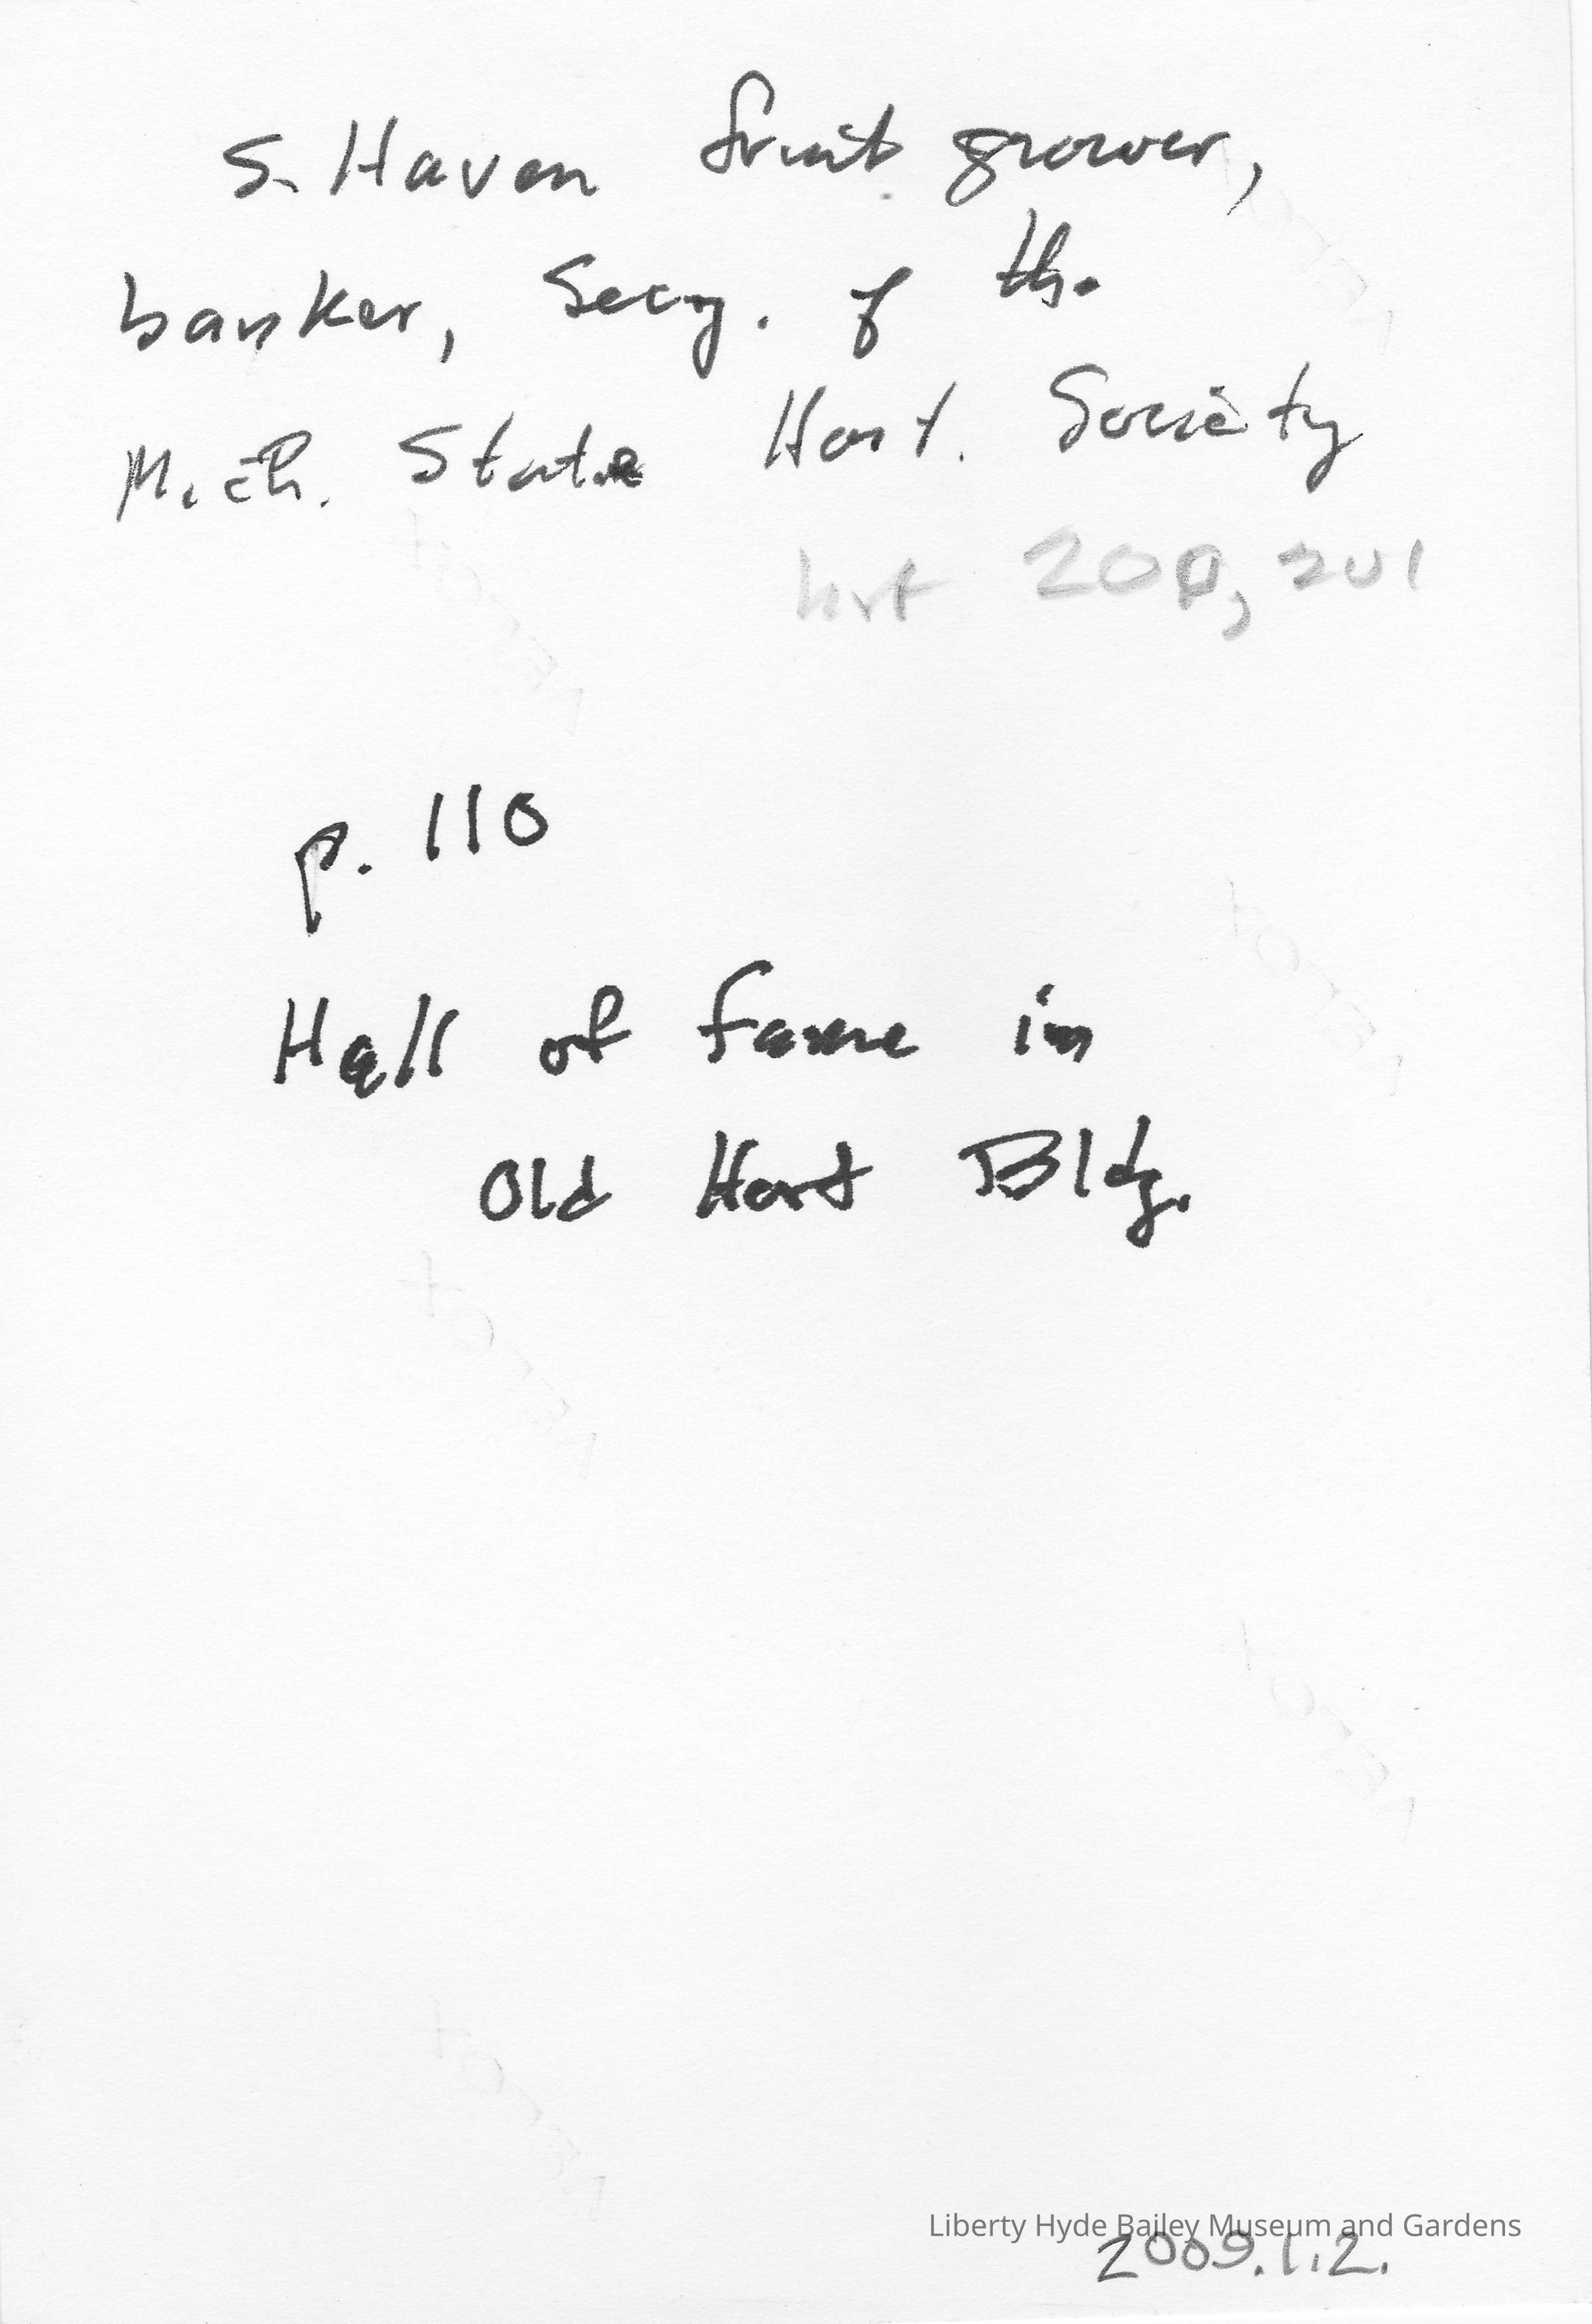 S. Haven fruit grower,
banker, Secy. of the
Mich. State Hort. Society
hrt 200, 201
p. 110
Hall of fame in
Old Hort Bldg.
Liberty Hyde Bailey Museum and Gardens
2009.1.2.